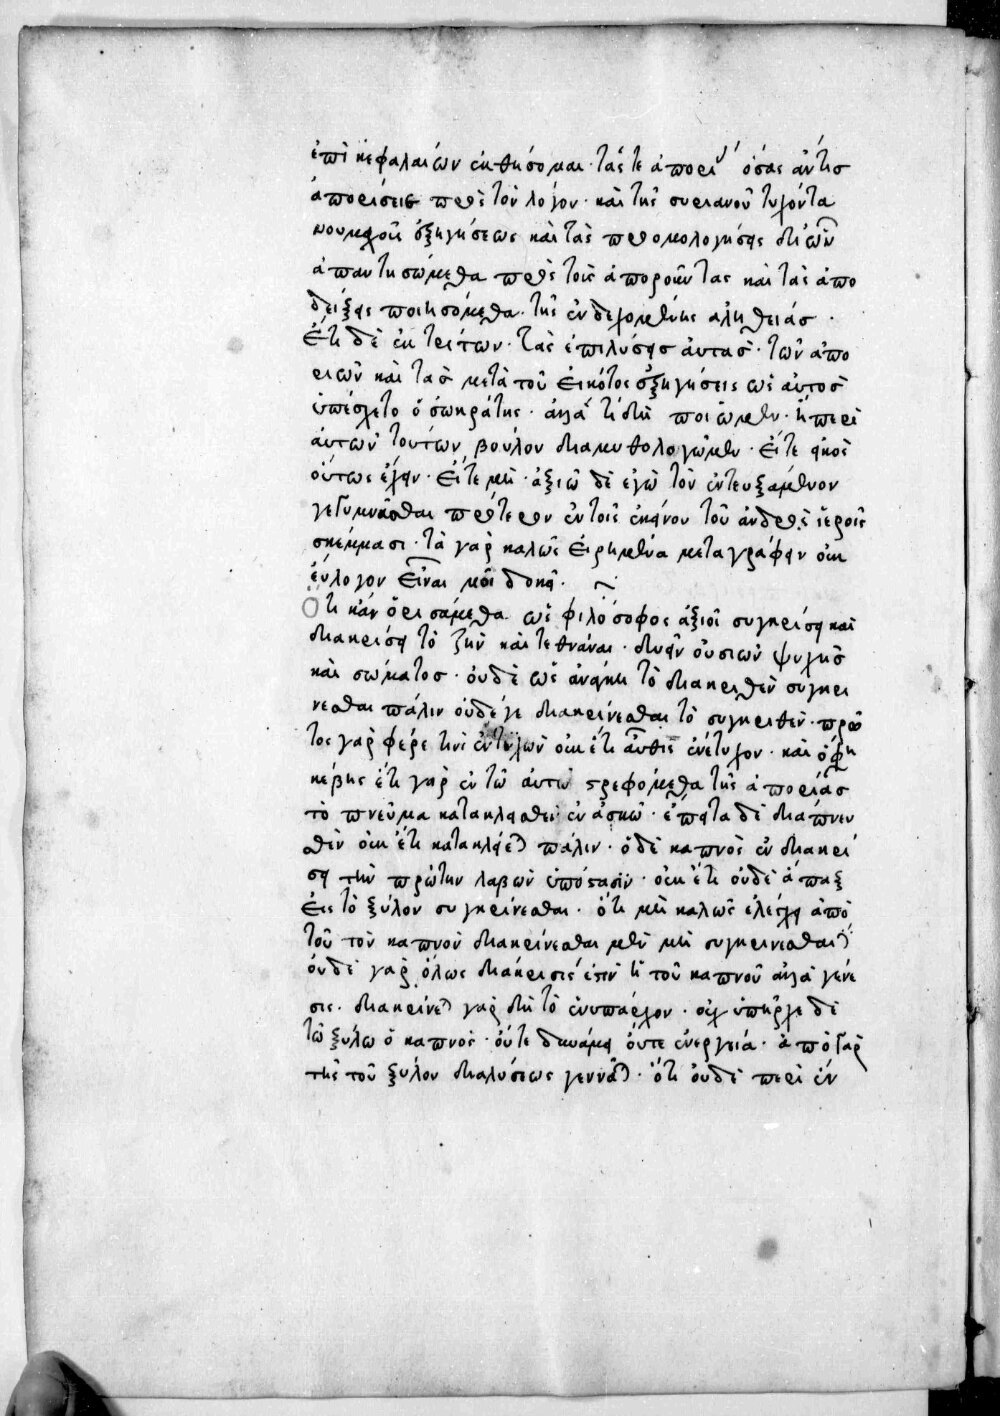 ἐπὶ κεφαλαιών ἐκθήσομαι· τάς τε ἀπορί ὁσας ἄν τισ
ἀπορίσειε πρὸς τὸν λόγον· καὶ τῆς συριανοῦ τυχόντα
νουμεχοῦς ἐξηγήσεως καὶ τὰς προομολογήσεις δι' ὧν
ἀπαντησώμεθα πρὸς τοὺς ἀποροῦντας καὶ τὰς ἀπο
δείξεις ποιησόμεθα. τῆς ἐνδεχομένης αληθειάσ.
Ἔτι δὲ ἐκ τρίτων· τὰς ἐπιλύσεισ ἀυτασ· τῶν ἀπο
ριῶν καὶ τασ μετὰ τοῦ ἐικότος ἐξηγήσεις ὡς ἀυτοσ
ὑπέσχετο ὁ σωκράτης· ἀλλὰ τί δὴ ποιῶμεν· ἢ περὶ
ἀυτῶν τούτων βούλου διαμυθολογῶμεν· ἔιτε εἰκὸς
ὅυτως ἔχειν· ἔιτε μή· ἀξιῶ δὲ ἐγὼ τὸν ἐντευξάμενον
γεγυμνᾶσθαι πρότερον ἐν τοῖς ἐκείνου τοῦ ἀνδρὸς ἱεροῖς
σκέμμασι· τὰ γὰρ καλῶς ἐιρημένα μεταγράφειν ουκ
ἔυλογον εἶναί μοι δοκεῖ.
Ὅτι κἂν ὁρισάμεθα ὡς φιλόσοφος ἀξιοῖ συγκρίσει καὶ
διακρίσει τὸ ζῆν καὶ τεθνάναι· δυεῖν οὐσιῶν ψυχῆσ
καὶ σώματος· ὀυδὲ ὣς ἀνάγκη τὸ διακριθὲν συγκρι
νεσθαι πάλιν ὀυδέ γε διακρίνεσθαι τὸ συγκριθέν· πρῶ
τος γὰρ φέρε τινὶ ἐντυχὼν ουκ ἔτι ἂυθις ἐνέτυχον· καὶ ὁ
κέβης ἔτι γὰρ ἐν τῶ ἀυτῶ τρεφόμεθα τῆς ἀπορίασ
τὸ πνεῦμα κατακλεισθεν ἐν ἀσκῶ· ἔπειτα δὲ διαπνευ
σθὲν ουκ ἔτι κατακλείεται πάλιν· ὁ δὲ καπνὸς ἐν διακρί
σει τὴν πρώτην λαβὼν ὑπόστασιν· ουκ ἔτι ὀυδὲ ἅπαξ
εις τὸ ξύλον συγκρίνεσθαι· ὅτι μὴ καλῶς ἐλέγχει ἀπὸ
τοῦ τὸν καπνὸν διακρίνεσθαι μὲν μὴ συγκρινεσθαι
ὀυδὲ γὰρ ὅλως διάκρισις ἐστὶν ἡ τοῦ καπνοῦ ἀλλὰ γένε
σις. διακρίνεται γὰρ δὴ τὸ ἐνυπάρχον· ουχ ὑπῆρχε δὲ
τῶ ξύλω ὁ καπνὸς· ὀύτε δυνάμει ὀύτε ἐνεργεία· ἀπὸ γὰρ
τῆς τοῦ ξύλου διαλύσεως γεννᾶται· ὅτι ὀυδὲ περὶ ἓν